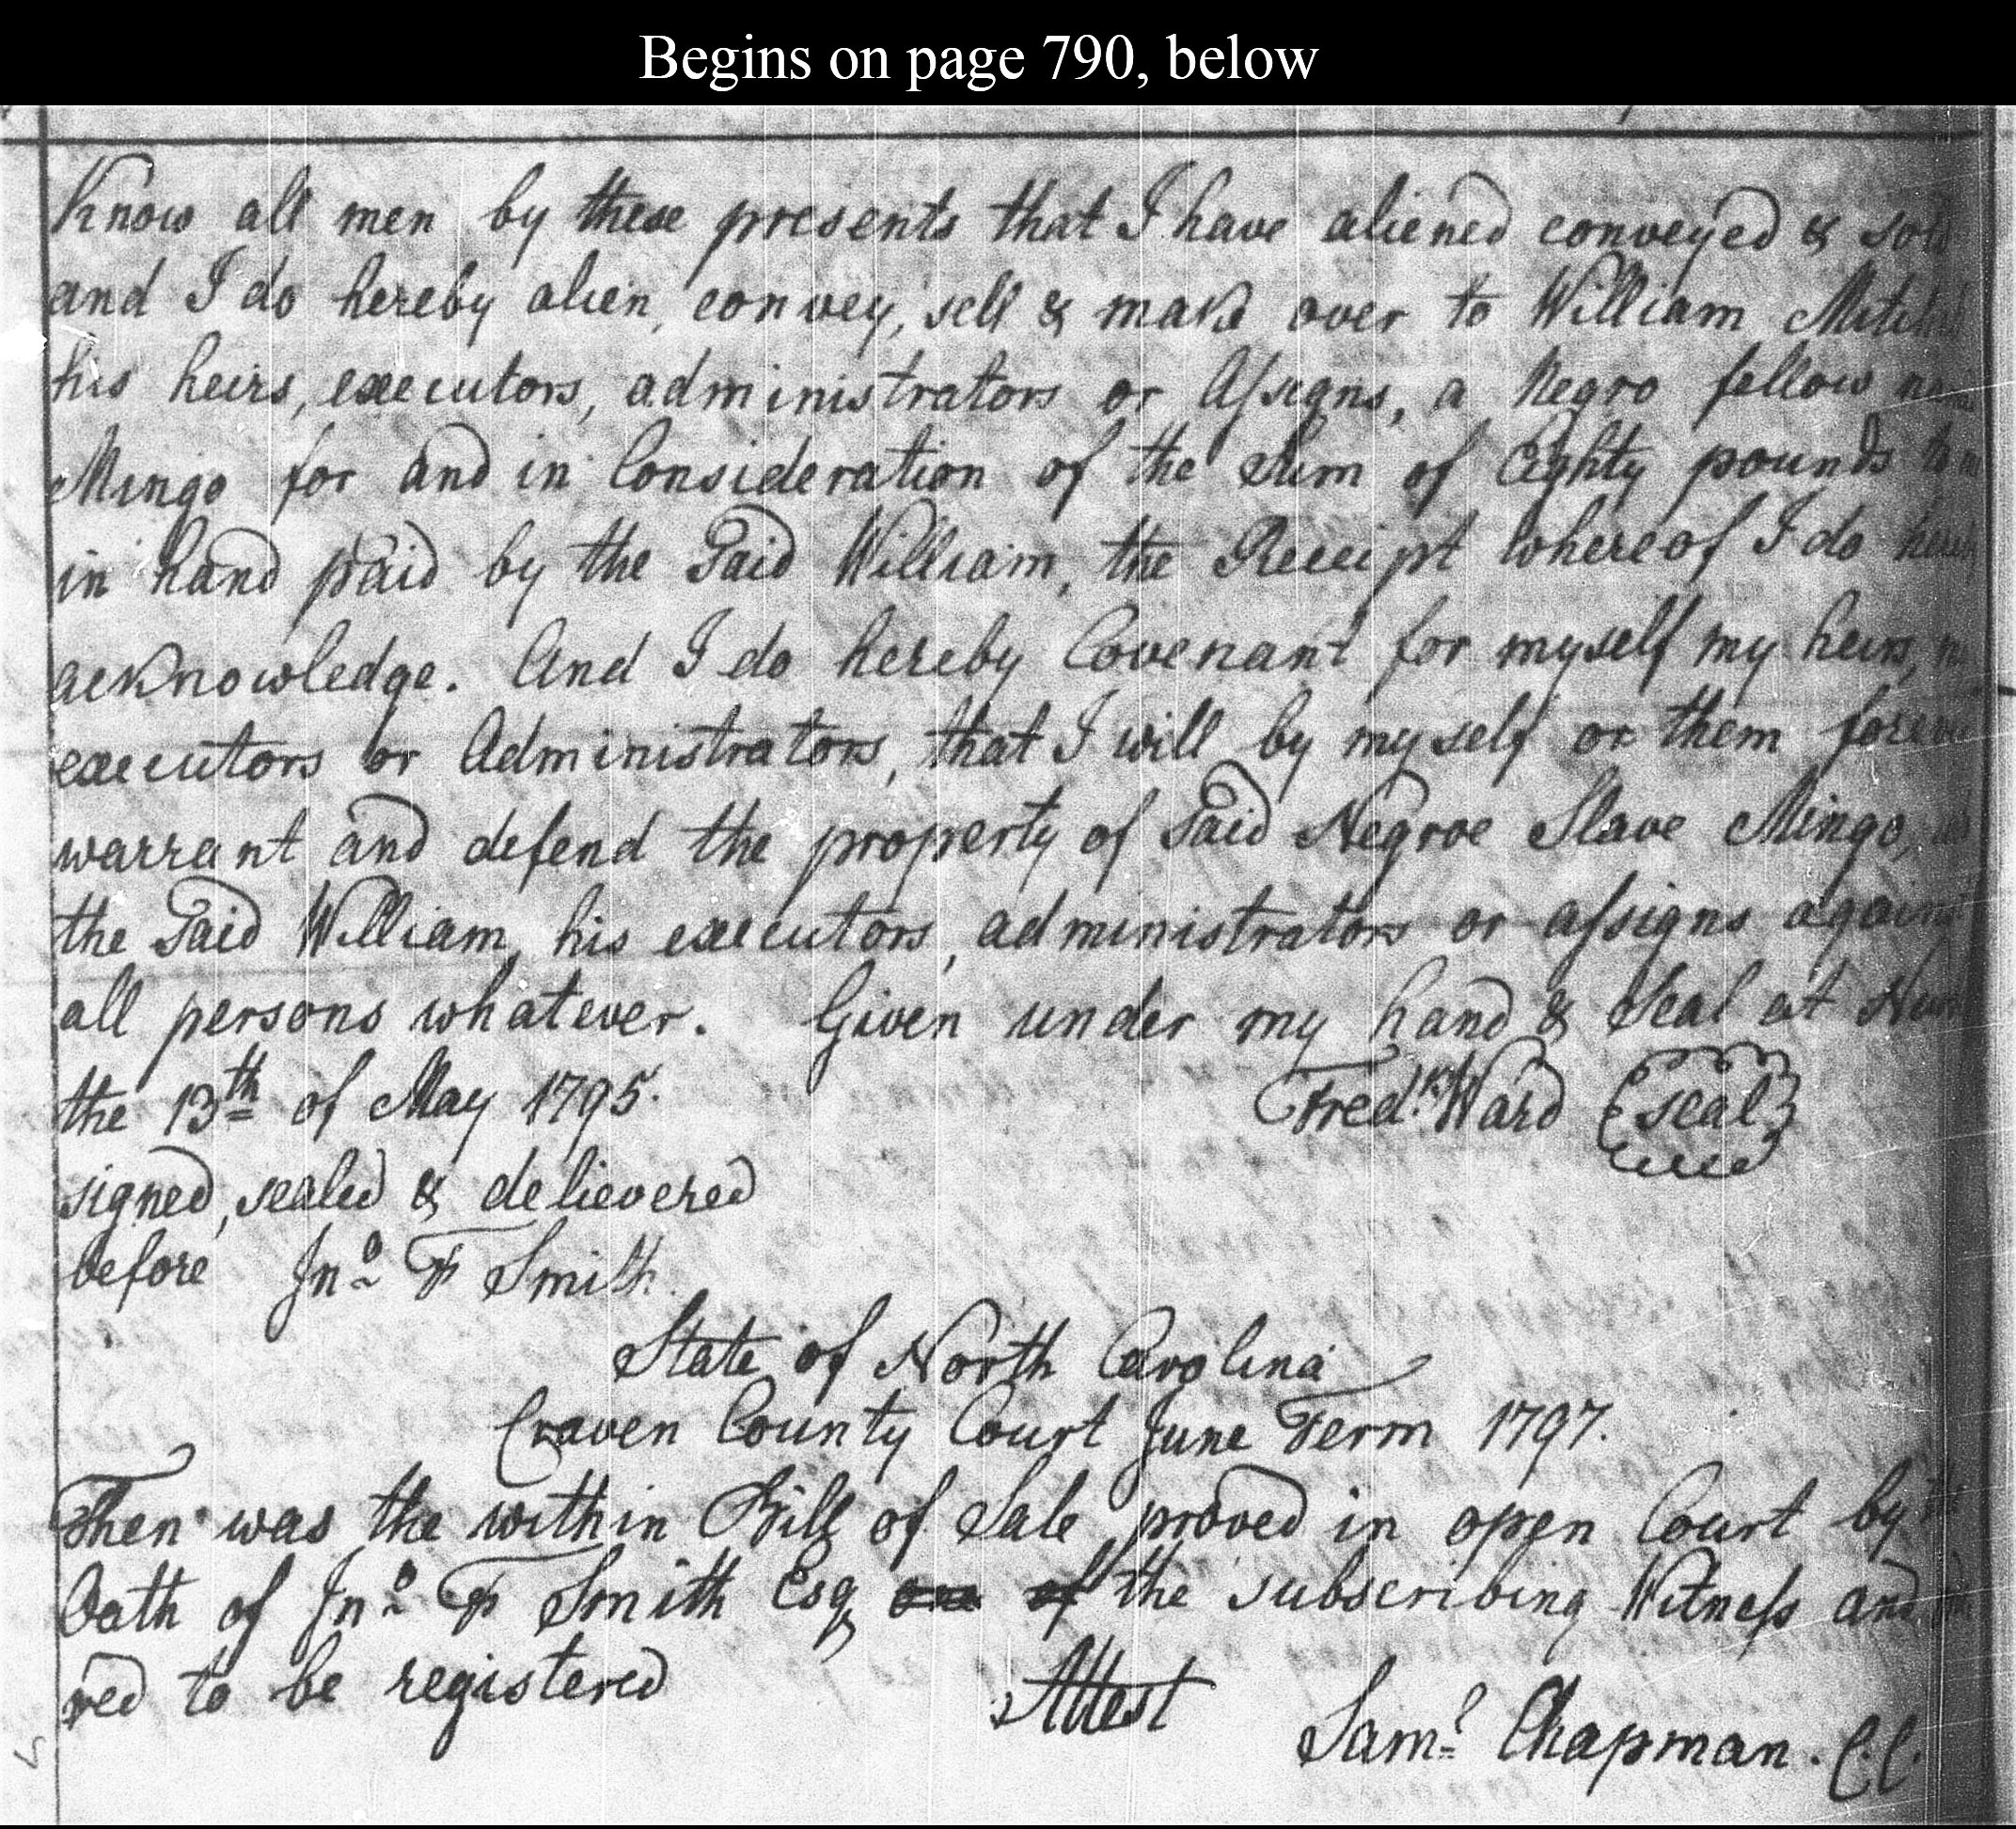 Begins on page 790, below
Know all men by these presents that I have aliened conveyed & sold
and I do hereby alien, convey, sell & make over to William
his heirs, executors, administrators or Assigns, a Negro fellow
Mingo for and in Consideration of the Sum of Eighty pounds to
in hand paid by the Said William, the Receipt whereof I do
acknowledge. And I do hereby Covenant for myself my heirs,
executors or Administrators, that I will by myself or them
warrant and defend the property of Said Negroe Slave Mingo,
the Said William, his executors, administrators or assigns against
all persons whatever. Given under my hand & Seal at
the 13th of May 1795. Fredk. Ward seal
signed, sealed & delievered
before Jno. F Smith
State of North Carolina
Craven County Court June Term 1797.
Then was the within Bill of Sale proved in open Court by
Oath of Jno. F Smith Esq one of the subscribing Witness and
red to be registered Attest
Saml. Chapman. C.C.